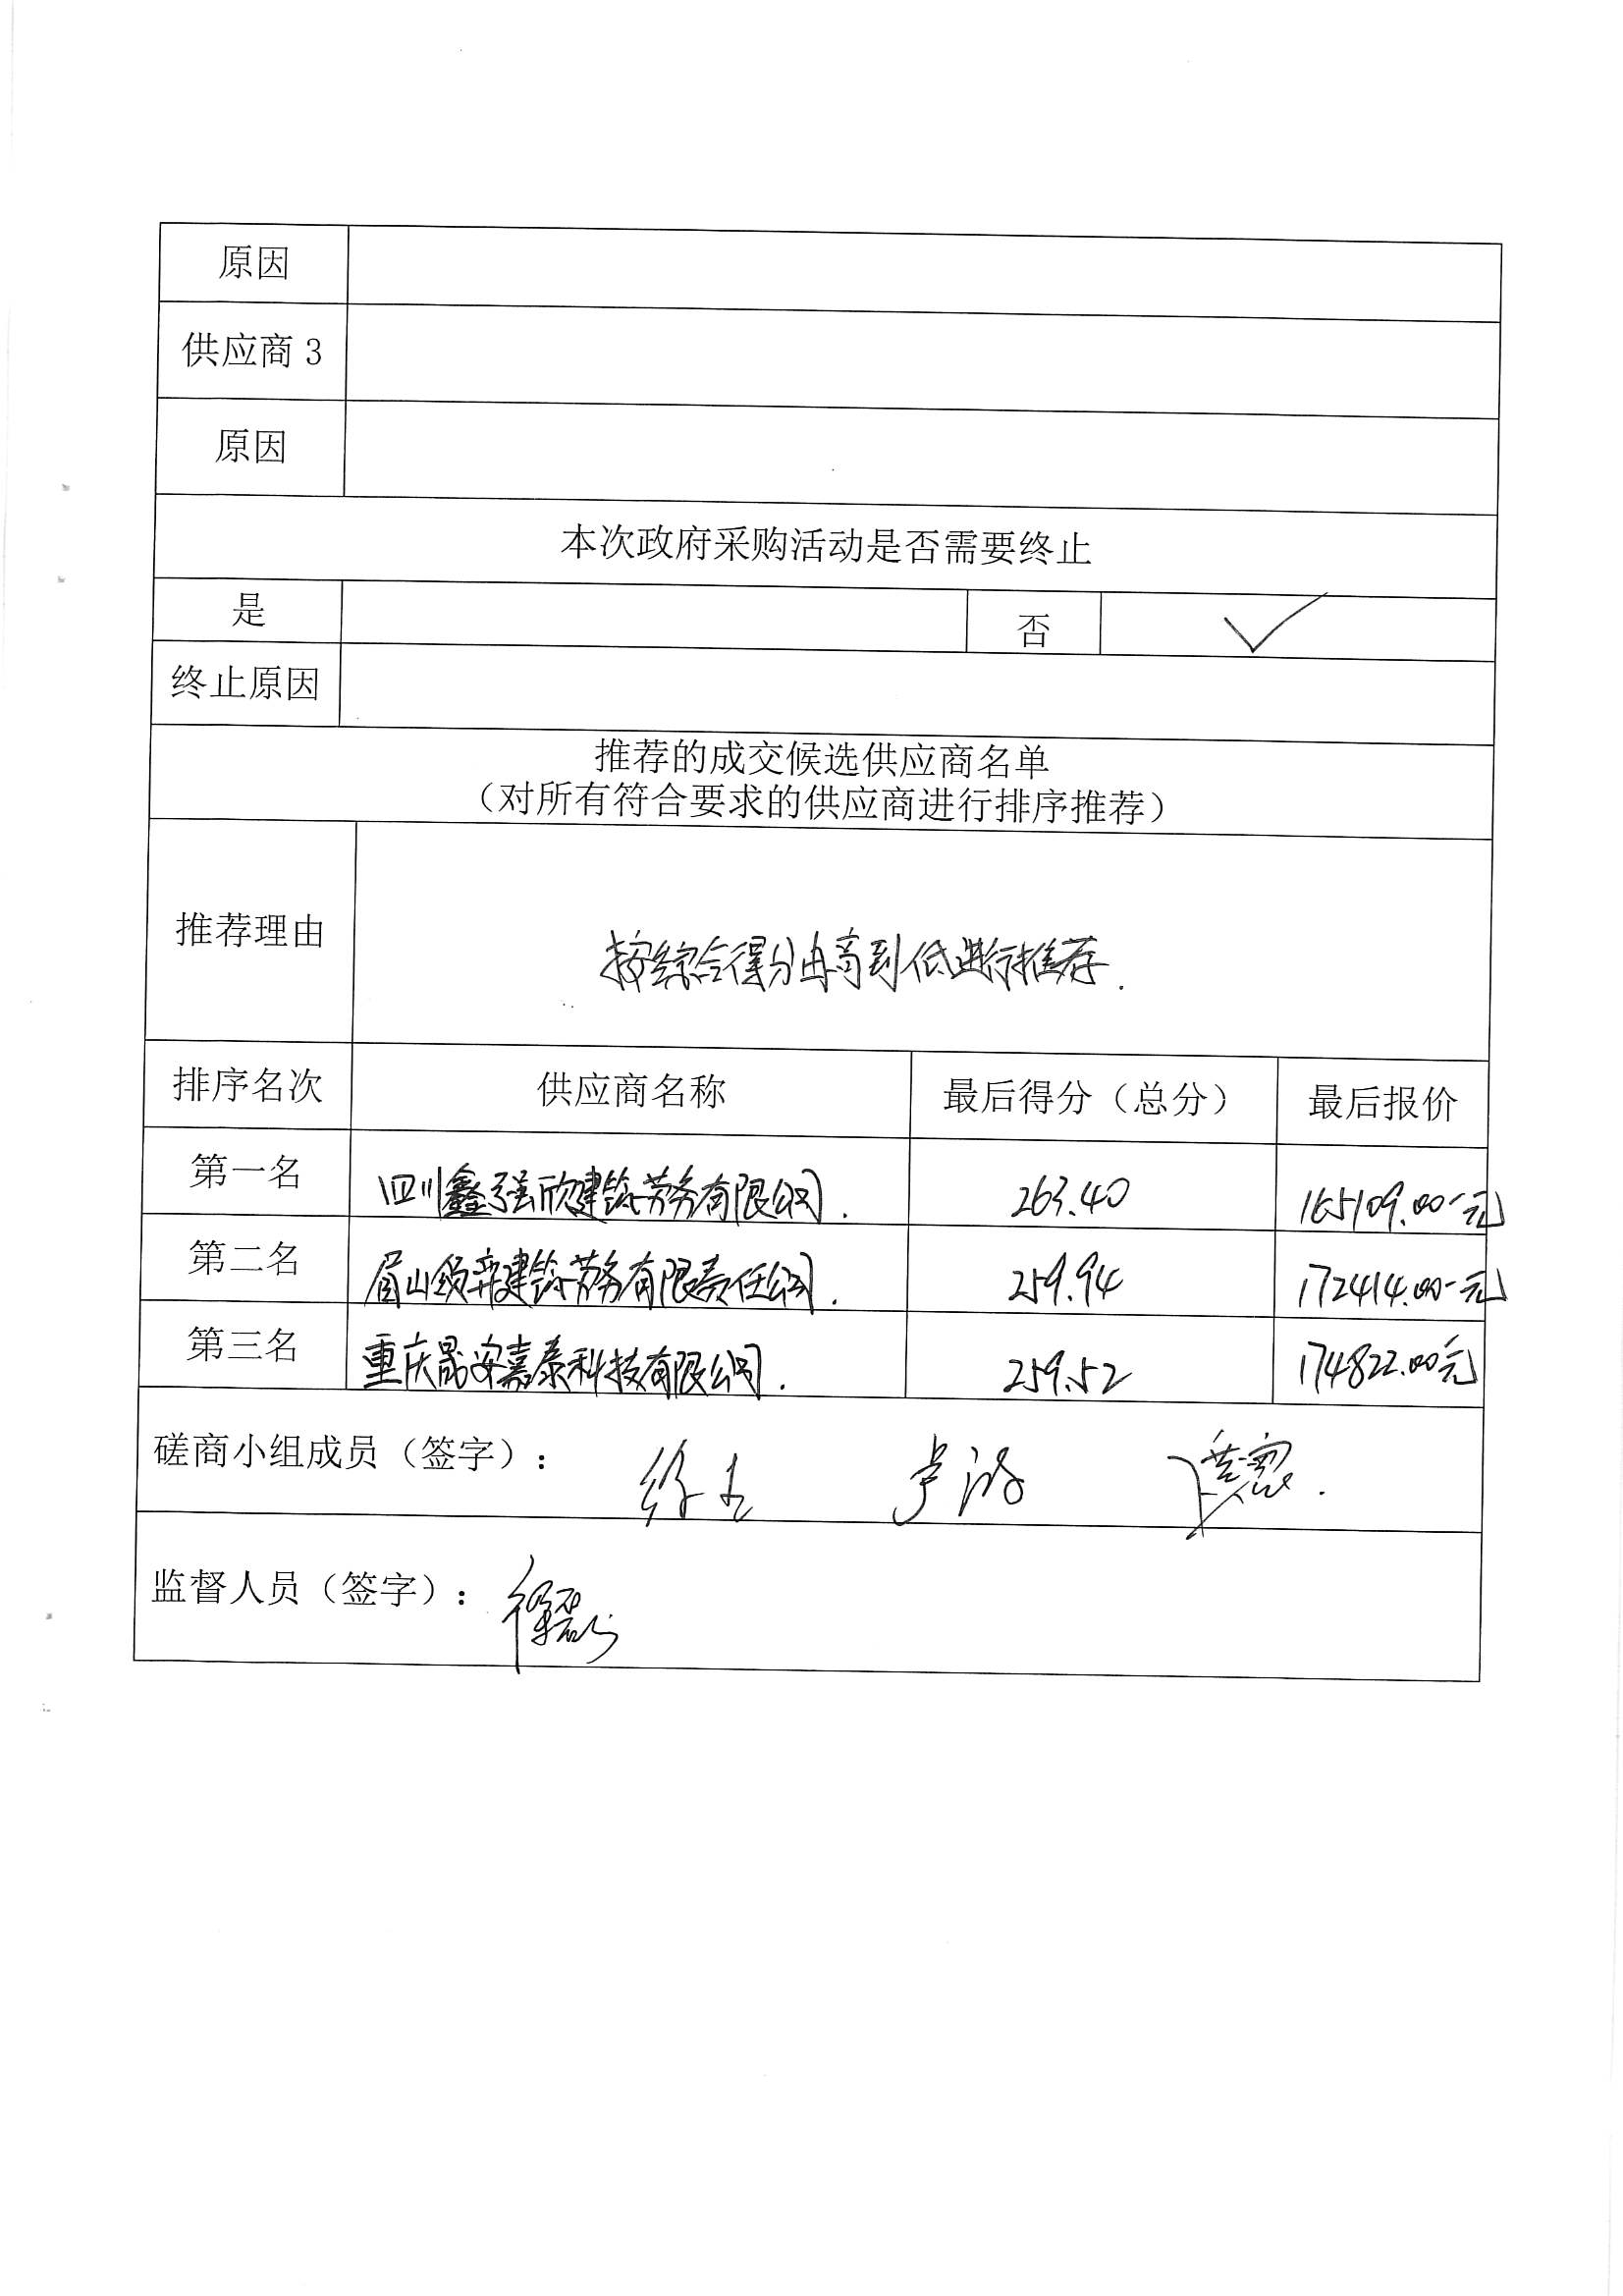 原因
供应商 3
原因
本次政府采购活动是否需要终止
是 否 ✓
终止原因
推荐的成交候选供应商名单
（对所有符合要求的供应商进行排序推荐）
推荐理由 按综合得分由高到低进行推荐.
排序名次 供应商名称 最后得分（总分） 最后报价
第一名 四川鑫强欣建筑劳务有限公司. 263.40 165109.00元
第二名 眉山 建筑劳务有限责任公司. 259.94 172414.00元
第三名 重庆晟安嘉泰科技有限公司. 259.52 174822.00元
磋商小组成员（签字）：
监督人员（签字）：